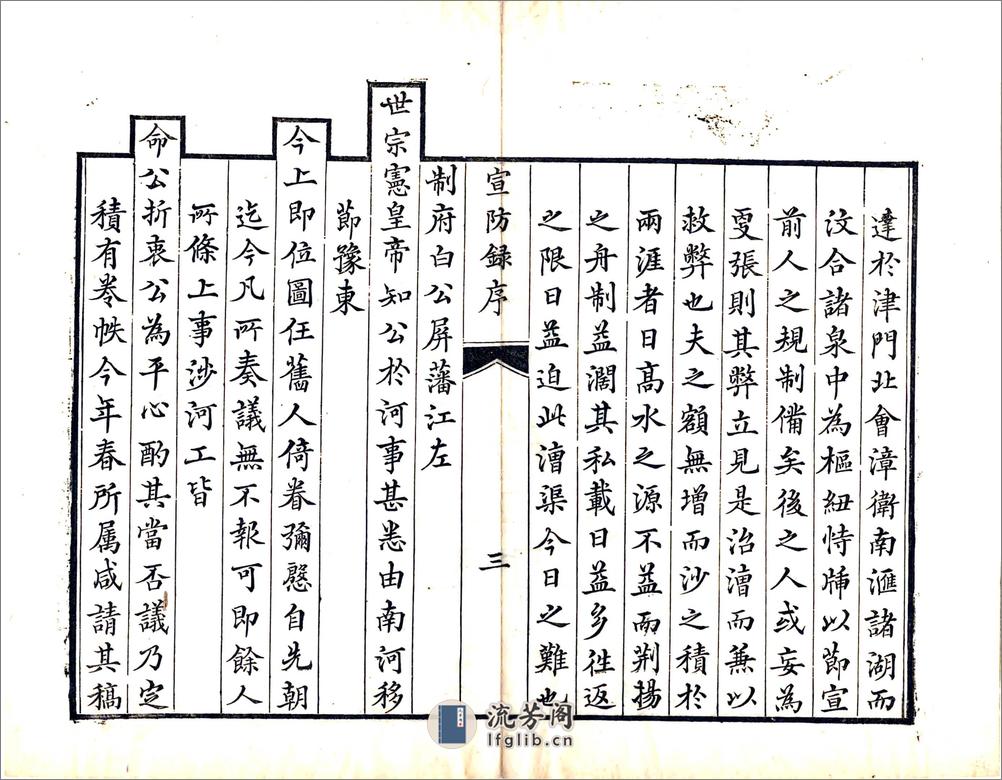 達於津門北會漳衛南滙諸湖而
汶合諸泉中為樞紐恃牐以節宣
前人之規制備矣後之人或妄為
更張則其弊立見是治漕而兼以
救弊也夫夫之額無增而沙之積於
兩涯者日高水之源不益而荆揚
之舟制益濶其私載日益多徃返
之限日益迫此漕渠今日之難也
宣防録序
三
制府白公屏藩江左
世宗憲皇帝知公於河事甚悉由南河移
節豫東
今上即位圖任舊人倚眷彌慇自先朝
迄今凡所奏議無不報可即餘人
所條上事涉河工皆
命公折衷公為平心酌其當否議乃定
積有卷帙今年春所属咸請其稿
流芳阁
lfglib.cn